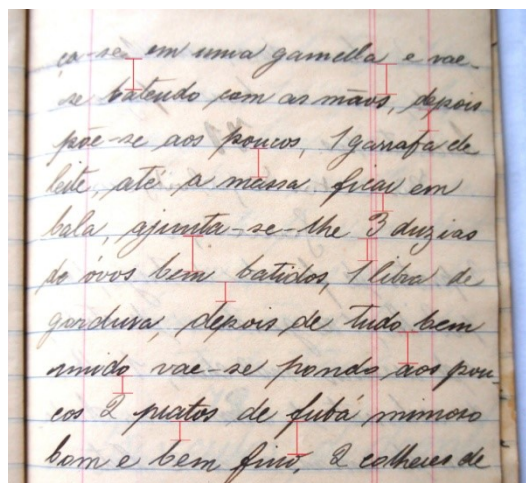 ça-se em uma gamella e vae-
se batendo com as mãos, depois
põe-se aos poucos, 1 garrafa de
leite, até a massa ficar em
bala, ajunta-se-lhe 3 duzias
de óvos bem batidos, 1 libra de
gordura, depois de tudo bem
unido vae-se pondo aos pou-
cos 2 pratos de fubá mimoso
bom e bem fino, 2 colheres de